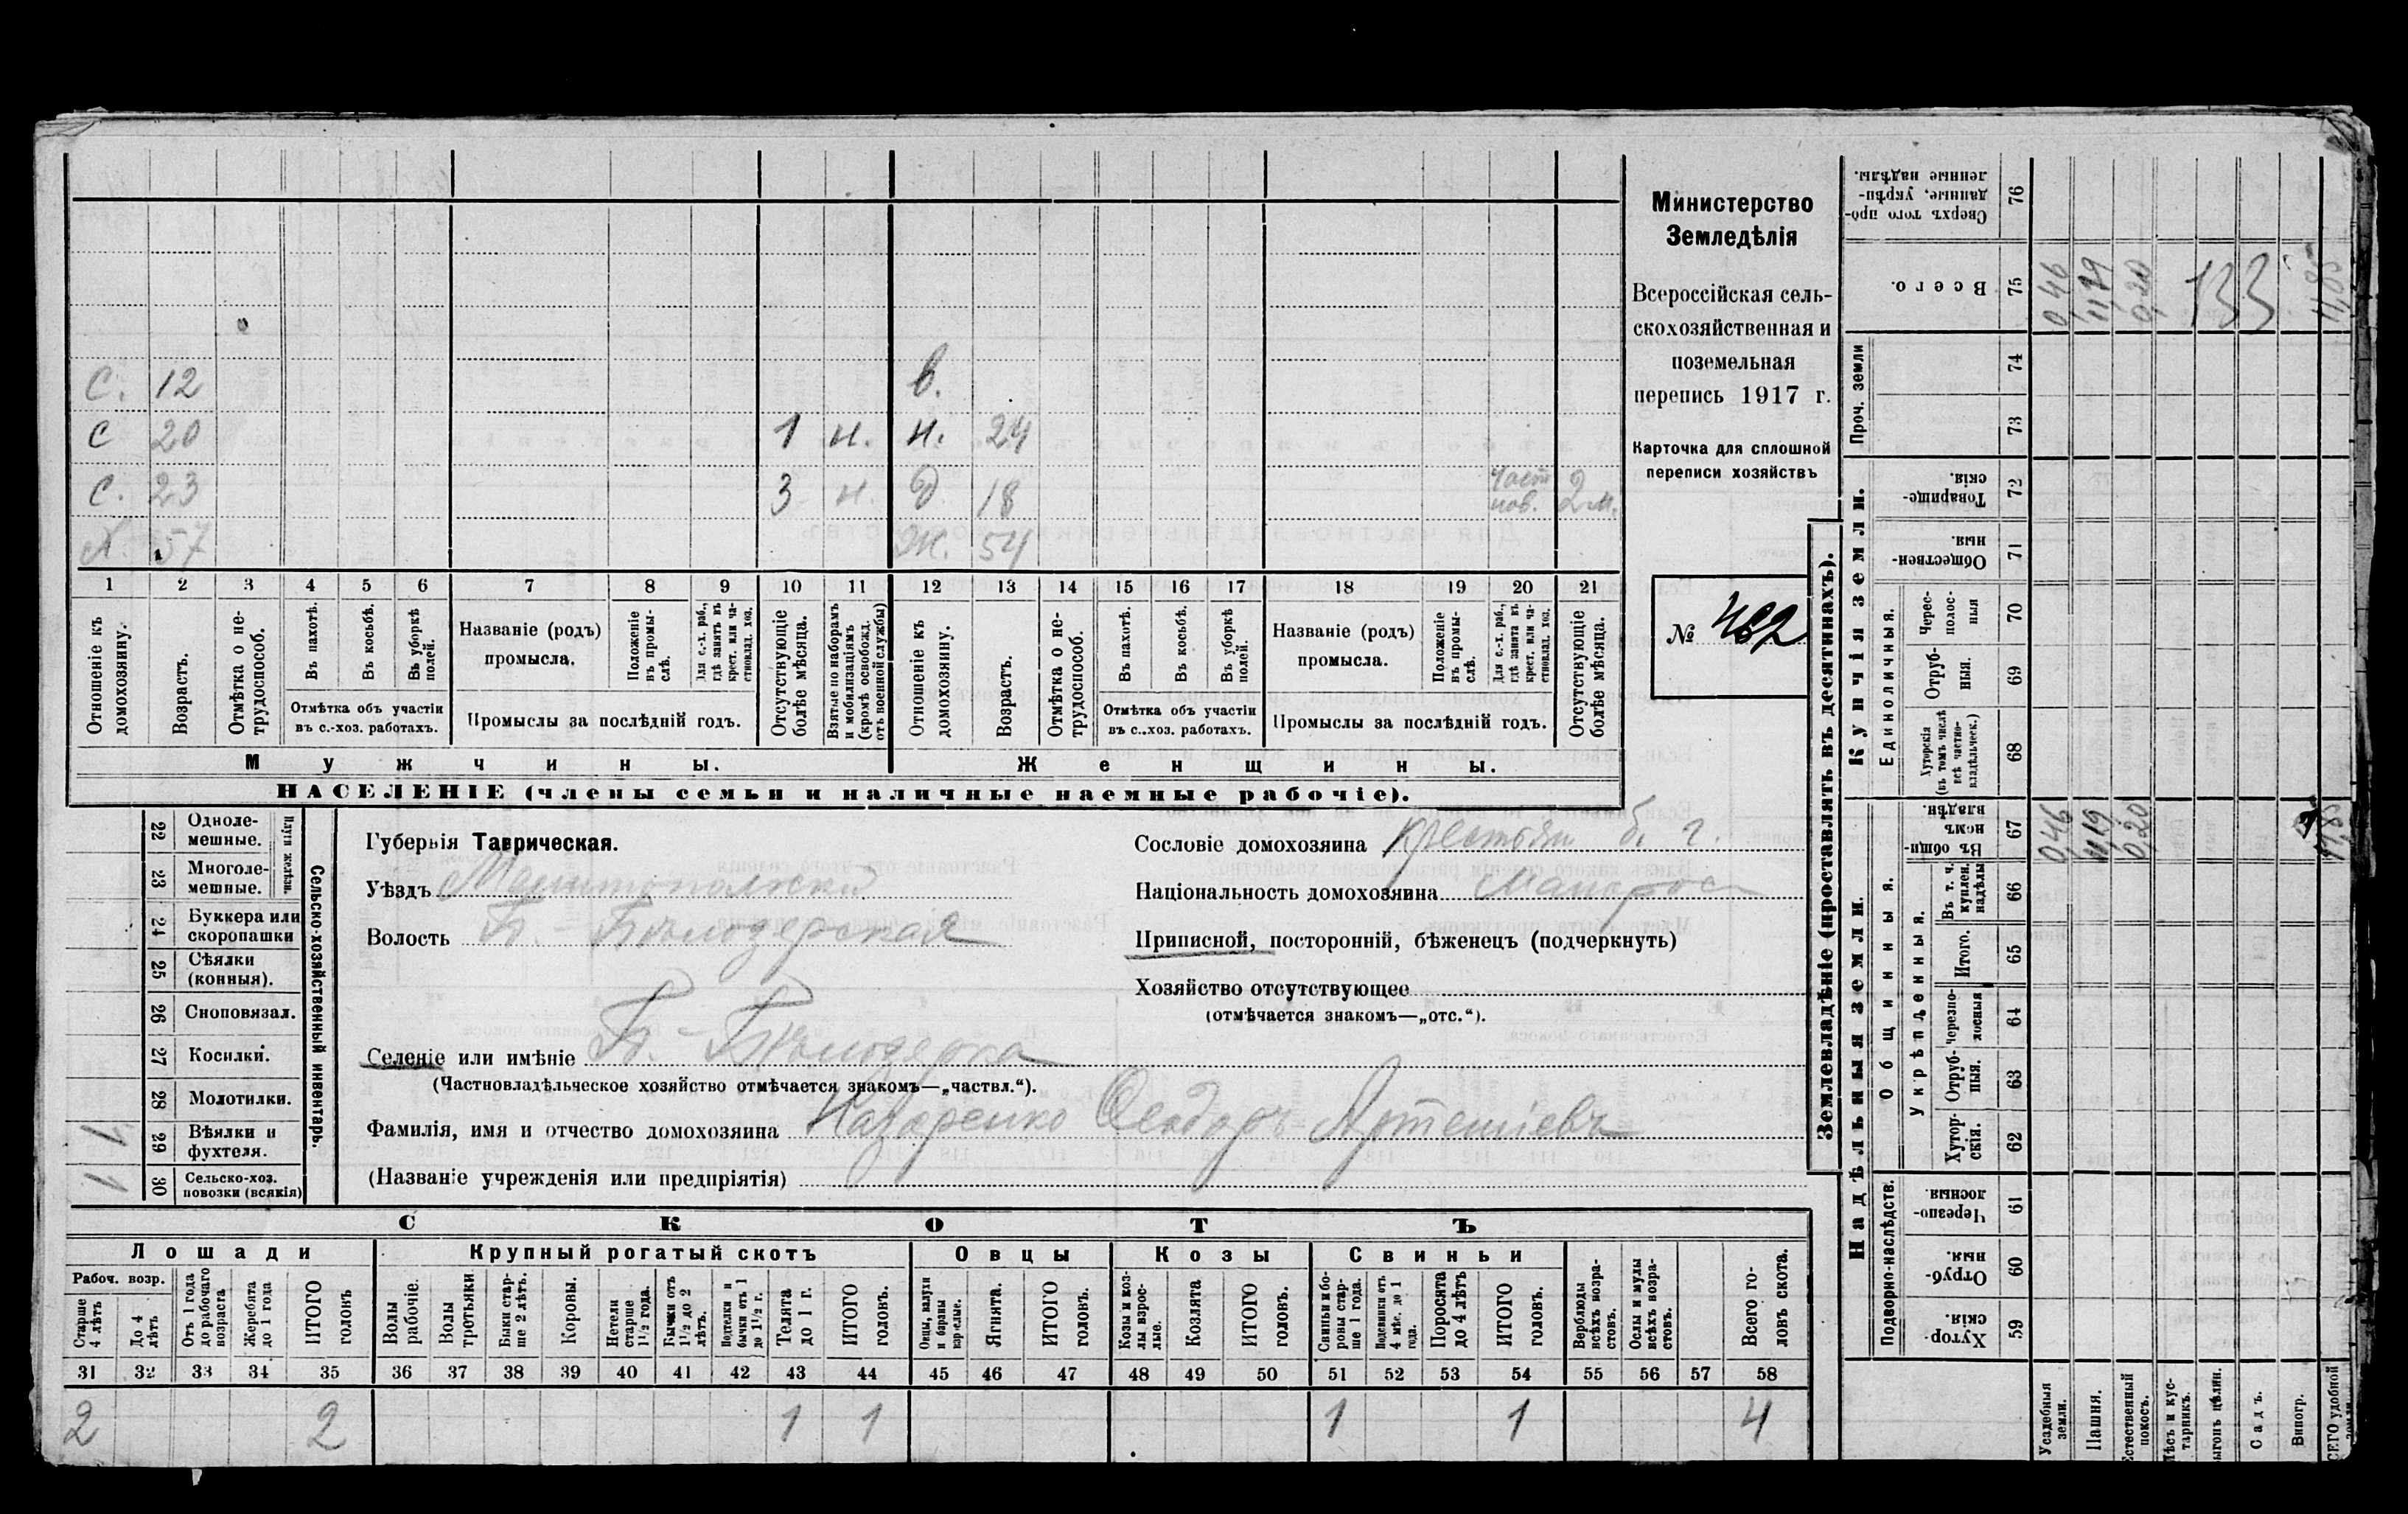 С. 12 в.
С 20 1 н. н. 24
С. 23 3 н. д 18 част нов. 2 м.
Х. 57 Ж. 54
1 2 3 4 5 6 7 8 9 10 11 12 13 14 15 16 17 18 19 20 21
Отношеніе къ домохозяину.
Возрастъ.
Отмѣтка о не-трудоспособ.
Въ пахотѣ.
Въ косьбѣ.
Въ уборкѣ полей.
Отмѣтка объ участіи въ с.-хоз. работахъ.
Названіе (родъ) промысла.
Положеніе въ промы-слѣ.
Для с.-х. раб., гдѣ занятъ въ крест. или ча-стновлад. хоз.
Промыслы за послѣдній годъ.
Отсутствующіе болѣе мѣсяца.
Взятые по наборамъ и мобилизаціямъ (кромѣ освобожд. отъ военной службы)
Отношеніе къ домохозяину.
Возрастъ.
Отмѣтка о не-трудоспособ.
Въ пахотѣ.
Въ косьбѣ.
Въ уборкѣ полей.
Отмѣтка объ участіи въ с.-хоз. работахъ.
Названіе (родъ) промысла.
Положеніе въ промы-слѣ.
Для с.-х. раб., гдѣ занята въ крест. или ча-стновлад. хоз.
Промыслы за послѣдній годъ.
Отсутствующіе болѣе мѣсяца.
Мужчины. Женщины.
НАСЕЛЕНІЕ (члены семьи и наличные наемные рабочіе).
Министерство
Земледѣлія
Всероссійская сель-
скохозяйственная и
поземельная
перепись 1917 г.
Карточка для сплошной
переписи хозяйствъ
№ 462
22 Одноле-мешные.
23 Многоле-мешные.
Плуги желѣзн.
24 Буккера или скоропашки
25 Сѣялки (конныя).
26 Сноповязал.
27 Косилки.
28 Молотилки.
29 Вѣялки и фухтеля. 1
30 Сельско-хоз. повозки (всякія) 1
Сельско-хозяйственный инвентарь.
Губернія Таврическая.
Уѣздъ Мелитопольскій
Волость Б.-Бѣлозерская
Селеніе или имѣніе Б.-Бѣлозерка
(Частновладѣльческое хозяйство отмѣчается знакомъ—„частвл.“).
Фамилія, имя и отчество домохозяина Назаренко Ѳеодоръ Артеміевъ
(Названіе учрежденія или предпріятія)
Сословіе домохозяина крестьян. б. г.
Національность домохозяина малорос
Приписной, посторонній, бѣженецъ (подчеркнуть)
Хозяйство отсутствующее
(отмѣчается знакомъ—„отс.“).
СКОТЪ
Лошади Крупный рогатый скотъ Овцы Козы Свиньи
Рабоч. возр.
Старше 4 лѣтъ
До 4 лѣтъ
Отъ 1 года до рабочаго возраста
Жеребята до 1 года
ИТОГО головъ
Волы рабочіе.
Волы третьяки
Быки стар-ше 2 лѣтъ.
Коровы.
Нетели старше 1½ года.
Бычки отъ 1½ до 2 лѣтъ.
Нетелки и бычки отъ 1 до 1½ г.
Телята до 1 г.
ИТОГО головъ.
Овцы, валухи и бараны взрослые.
Ягнята.
ИТОГО головъ.
Козы и коз-лы взрос-лые.
Козлята
ИТОГО головъ.
Свиньи и бо-ровы стар-ше 1 года.
Подсвинки отъ 4 мѣс. до 1 года.
Поросята до 4 лѣтъ
ИТОГО головъ.
Верблюды всѣхъ возра-стовъ.
Ослы и мулы всѣхъ возра-стовъ.
Всего го-ловъ скота.
31 32 33 34 35 36 37 38 39 40 41 42 43 44 45 46 47 48 49 50 51 52 53 54 55 56 57 58
2 2 1 1 1 1 4
Землевладѣніе (проставлять въ десятинахъ).
Надѣльныя земли. Купчія земли. Проч. земли
Подворно-наслѣдств.
Общинныя.
Укрѣпленныя.
Единоличныя.
Сверхъ того про-данные, укрѣп-ленные надѣлы. 76
Всего. 75 0,46 11,19 0,20 133 11,85
74
73
Товарище-скія. 72
Обществен-ныя. 71
Черес-полос-ныя 70
Отруб-ныя. 69
Хуторскія (въ томъ числѣ всѣ частно-владѣльческ.) 68
Въ общин-номъ владѣн. 67 0,46 11,19 0,20 11,85
Въ т. ч. куплен. надѣлы 66
Итого. 65
черезпо-лосныя 64
Отруб-ныя. 63
Хутор-скія. 62
Черезпо-лосныя. 61
Отруб-ныя. 60
Хутор-скія. 59
Усадебныя земли.
Пашня.
Естественный покосъ.
Лѣсъ и кус-тарникъ.
ыгонъ цѣлин.
Садъ.
Виногр.
СЕГО удобной